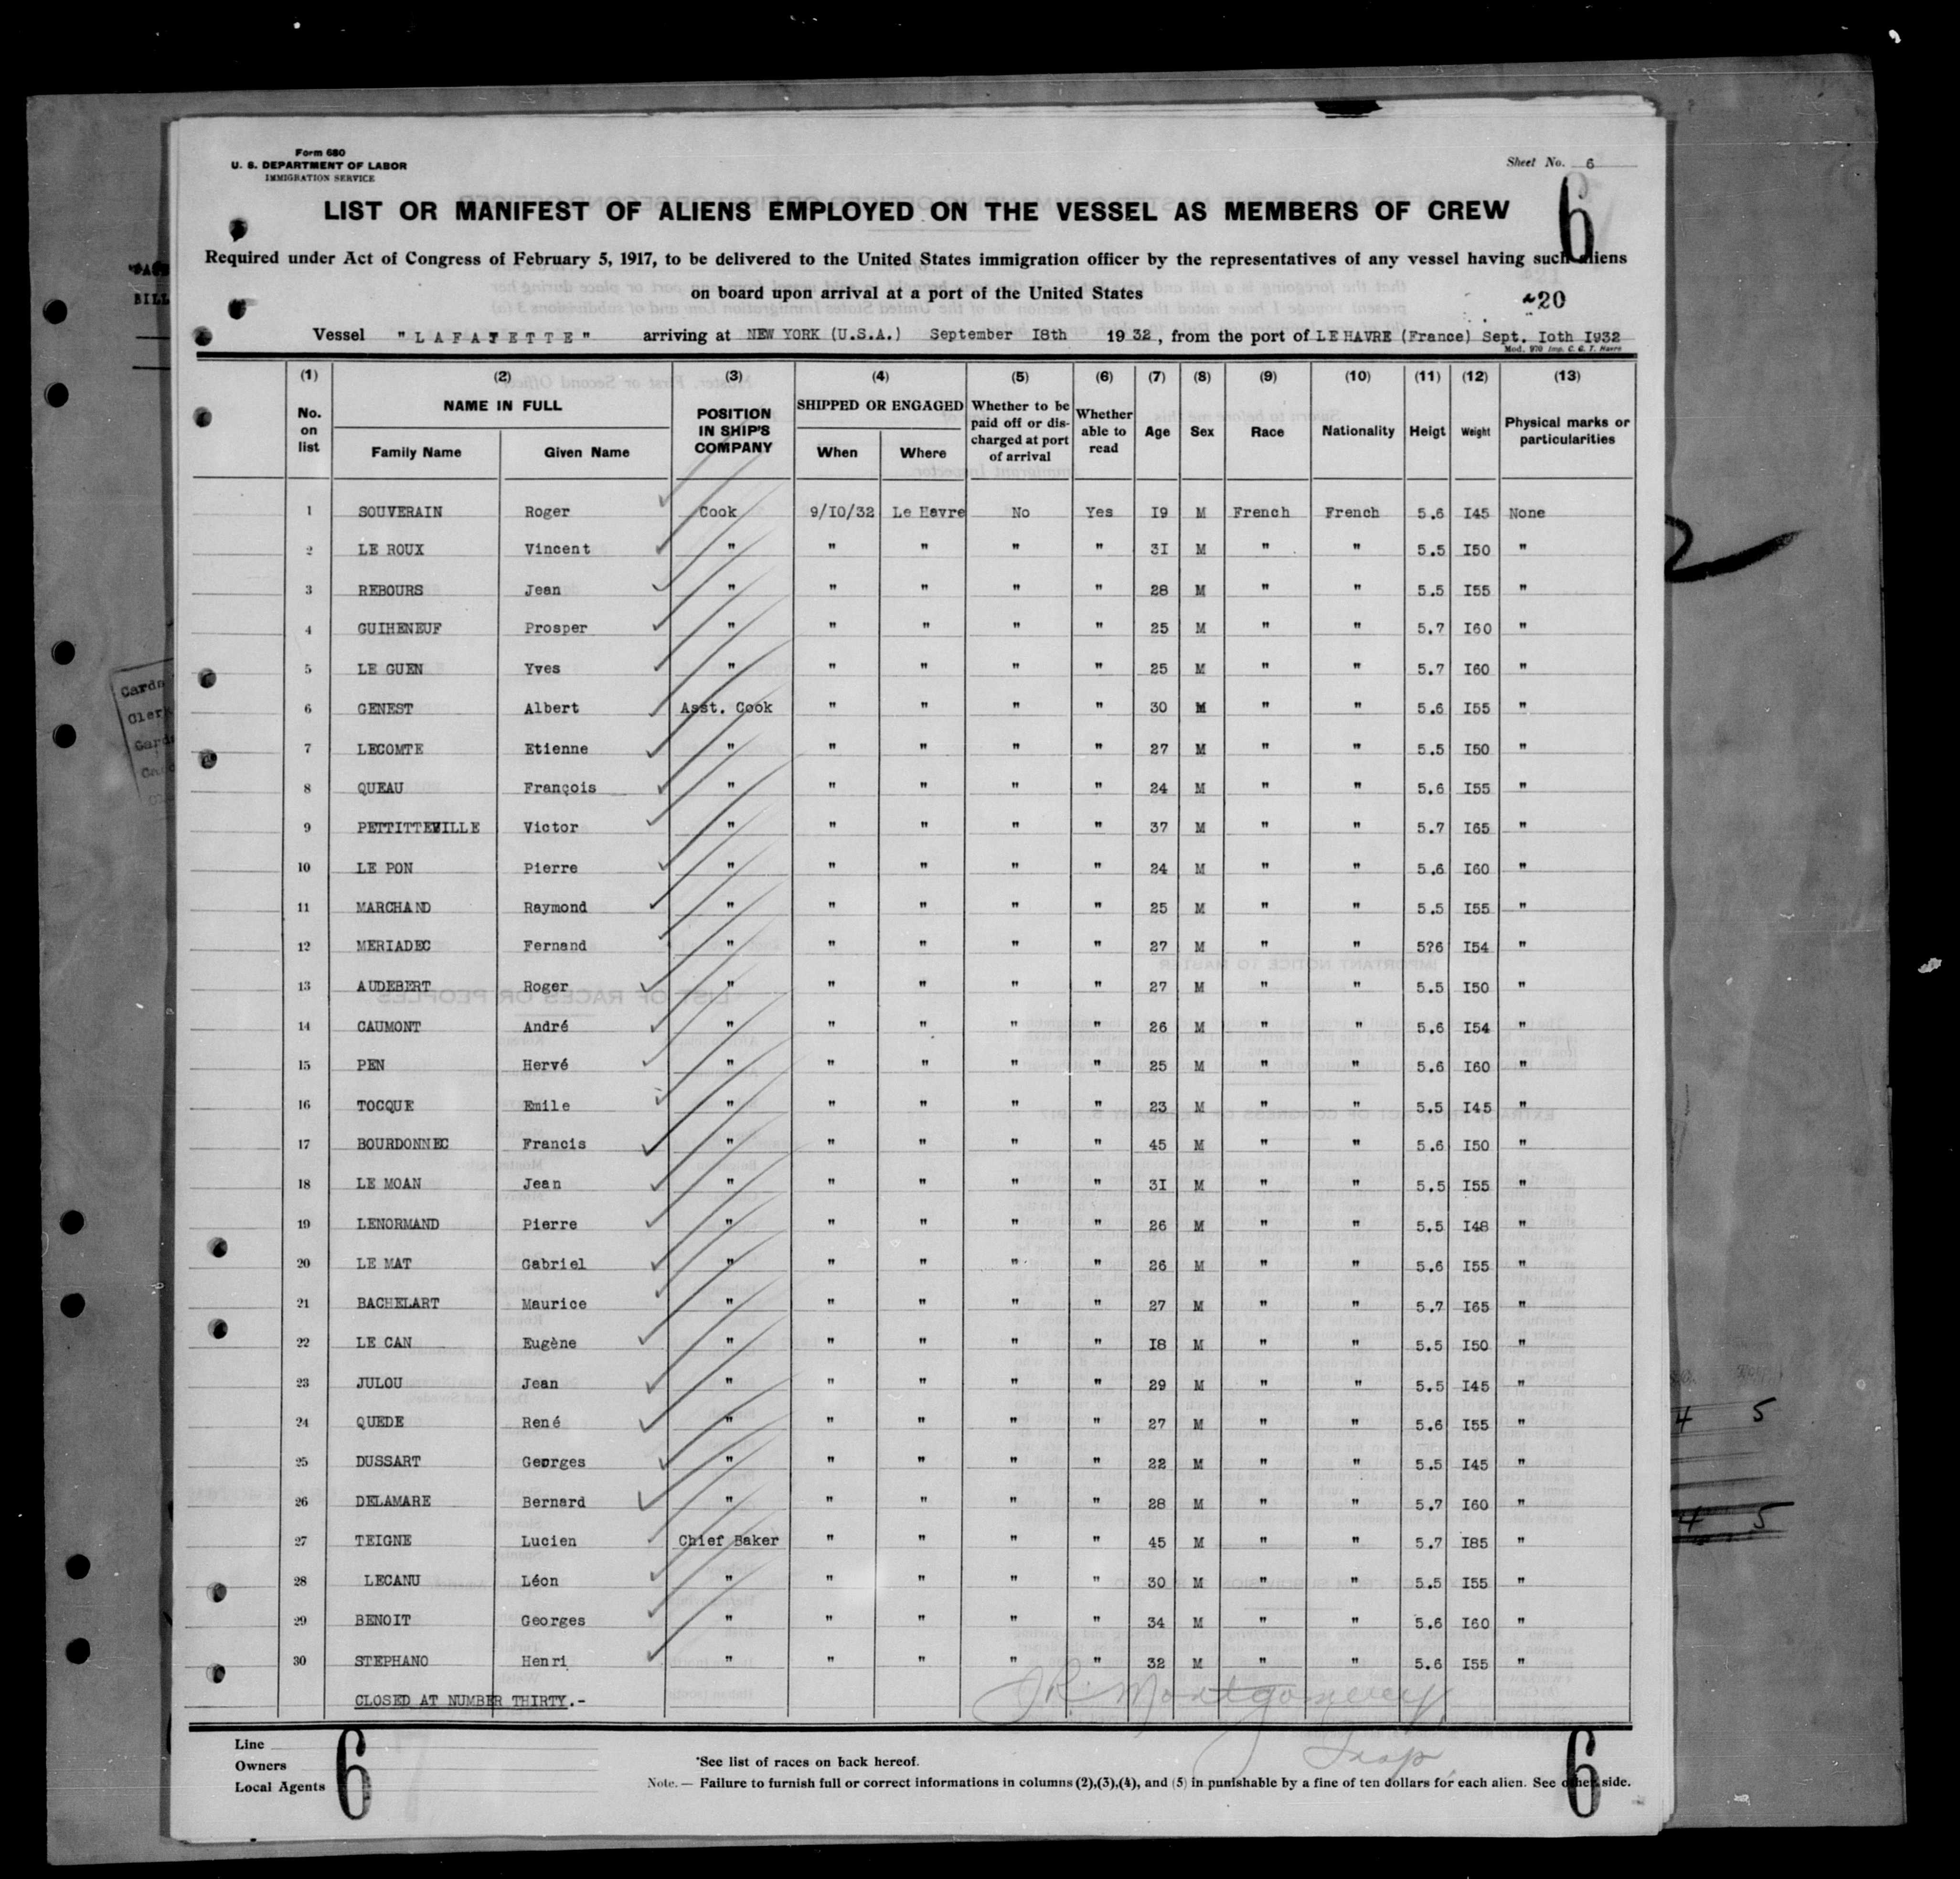 Form 680
U. S. DEPARTMENT OF LABOR
IMMIGRATION SERVICE
Sheet No. 6
6
LIST OR MANIFEST OF ALIENS EMPLOYED ON THE VESSEL AS MEMBERS OF CREW
Required under Act of Congress of February 5, 1917, to be delivered to the United States immigration officer by the representatives of any vessel having such aliens
on board upon arrival at a port of the United States
20
Vessel "LAFAYETTE" arriving at NEW YORK (U.S.A.) September I8th 1932, from the port of LE HAVRE (France) Sept. Ioth I932
Mod. 970 Imp. C. G. T. Havre
(1) (2) (3) (4) (5) (6) (7) (8) (9) (10) (11) (12) (13)
No. on list NAME IN FULL Family Name Given Name POSITION IN SHIP'S COMPANY SHIPPED OR ENGAGED When Where Whether to be paid off or discharged at port of arrival Whether able to read Age Sex Race Nationality Heigt Weight Physical marks or particularities
1 SOUVERAIN Roger Cook 9/I0/32 Le Havre No Yes I9 M French French 5.6 I45 None
2 LE ROUX Vincent " " " " " 3I M " " 5.5 I50 "
3 REBOURS Jean " " " " " 28 M " " 5.5 I55 "
4 GUIHENEUF Prosper " " " " " 25 M " " 5.7 I60 "
5 LE GUEN Yves " " " " " 25 M " " 5.7 I60 "
6 GENEST Albert Asst. Cook " " " " 30 M " " 5.6 I55 "
7 LECOMTE Etienne " " " " " 27 M " " 5.5 I50 "
8 QUEAU François " " " " " 24 M " " 5.6 I55 "
9 PETTITTEVILLE Victor " " " " " 37 M " " 5.7 I65 "
10 LE PON Pierre " " " " " 24 M " " 5.6 I60 "
11 MARCHAND Raymond " " " " " 25 M " " 5.5 I55 "
12 MERIADEC Fernand " " " " " 27 M " " 5?6 I54 "
13 AUDEBERT Roger " " " " " 27 M " " 5.5 I50 "
14 CAUMONT André " " " " " 26 M " " 5.6 I54 "
15 PEN Hervé " " " " " 25 M " " 5.6 I60 "
16 TOCQUE Emile " " " " " 23 M " " 5.5 I45 "
17 BOURDONNEC Francis " " " " " 45 M " " 5.6 I50 "
18 LE MOAN Jean " " " " " 3I M " " 5.5 I55 "
19 LENORMAND Pierre " " " " " 26 M " " 5.5 I48 "
20 LE MAT Gabriel " " " " " 26 M " " 5.6 I55 "
21 BACHELART Maurice " " " " " 27 M " " 5.7 I65 "
22 LE CAN Eugène " " " " " I8 M " " 5.5 I50 "
23 JULOU Jean " " " " " 29 M " " 5.5 I45 "
24 QUEDE René " " " " " 27 M " " 5.6 I55 "
25 DUSSART Georges " " " " " 22 M " " 5.5 I45 "
26 DELAMARE Bernard " " " " " 28 M " " 5.7 I60 "
27 TEIGNE Lucien Chief Baker " " " " 45 M " " 5.7 I85 "
28 LECANU Léon " " " " " 30 M " " 5.5 I55 "
29 BENOIT Georges " " " " " 34 M " " 5.6 I60 "
30 STEPHANO Henri " " " " " 32 M " " 5.6 I55 "
CLOSED AT NUMBER THIRTY.-
J.R. Montgomery
Insp.
Line
Owners
Local Agents
6
*See list of races on back hereof.
Note. — Failure to furnish full or correct informations in columns (2),(3),(4), and (5) in punishable by a fine of ten dollars for each alien. See other side.
6